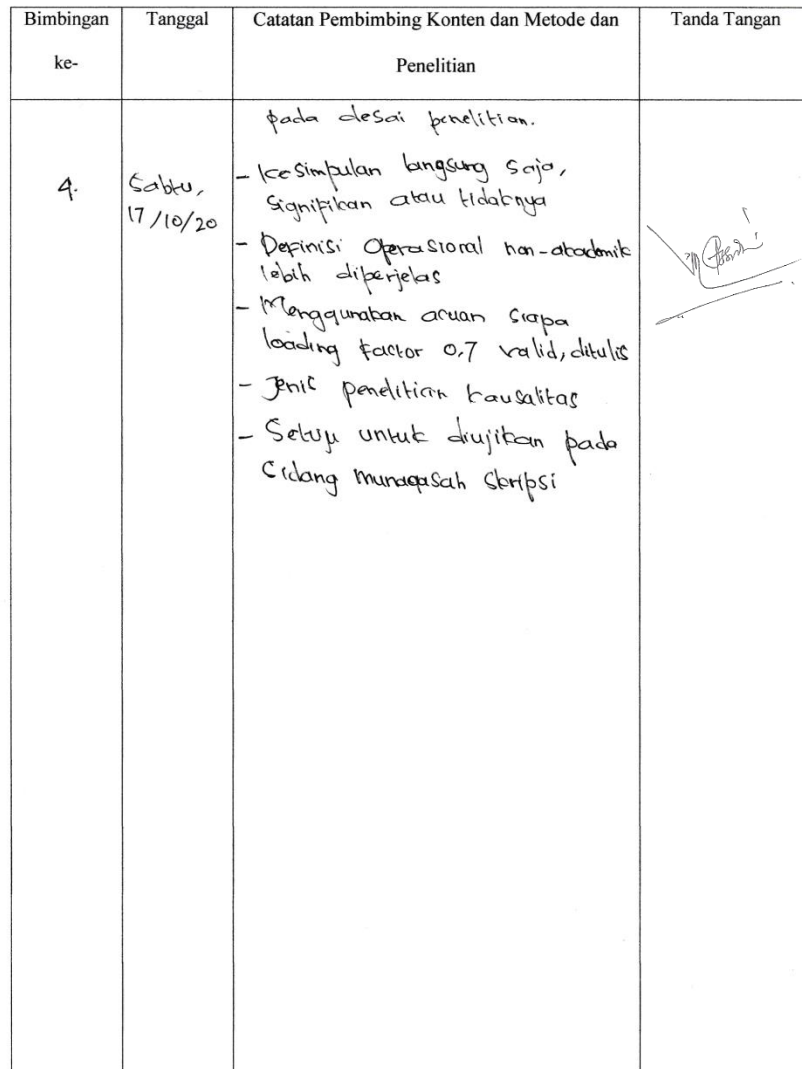 Bimbingan ke-
Tanggal
Catatan Pembimbing Konten dan Metode dan
Penelitian
Tanda Tangan
pada desai penelitian.
4.
Sabtu,
17/10/20
- Kesimpulan langsung saja,
signifikan atau tidaknya
- Definisi Operasional non-akademik
lebih diperjelas
- Menggunakan acuan siapa
loading factor 0.7 valid, ditulis
- Jenis penelitian kausalitas
- Setuju untuk diujikan pada
Sidang munaqasah skripsi